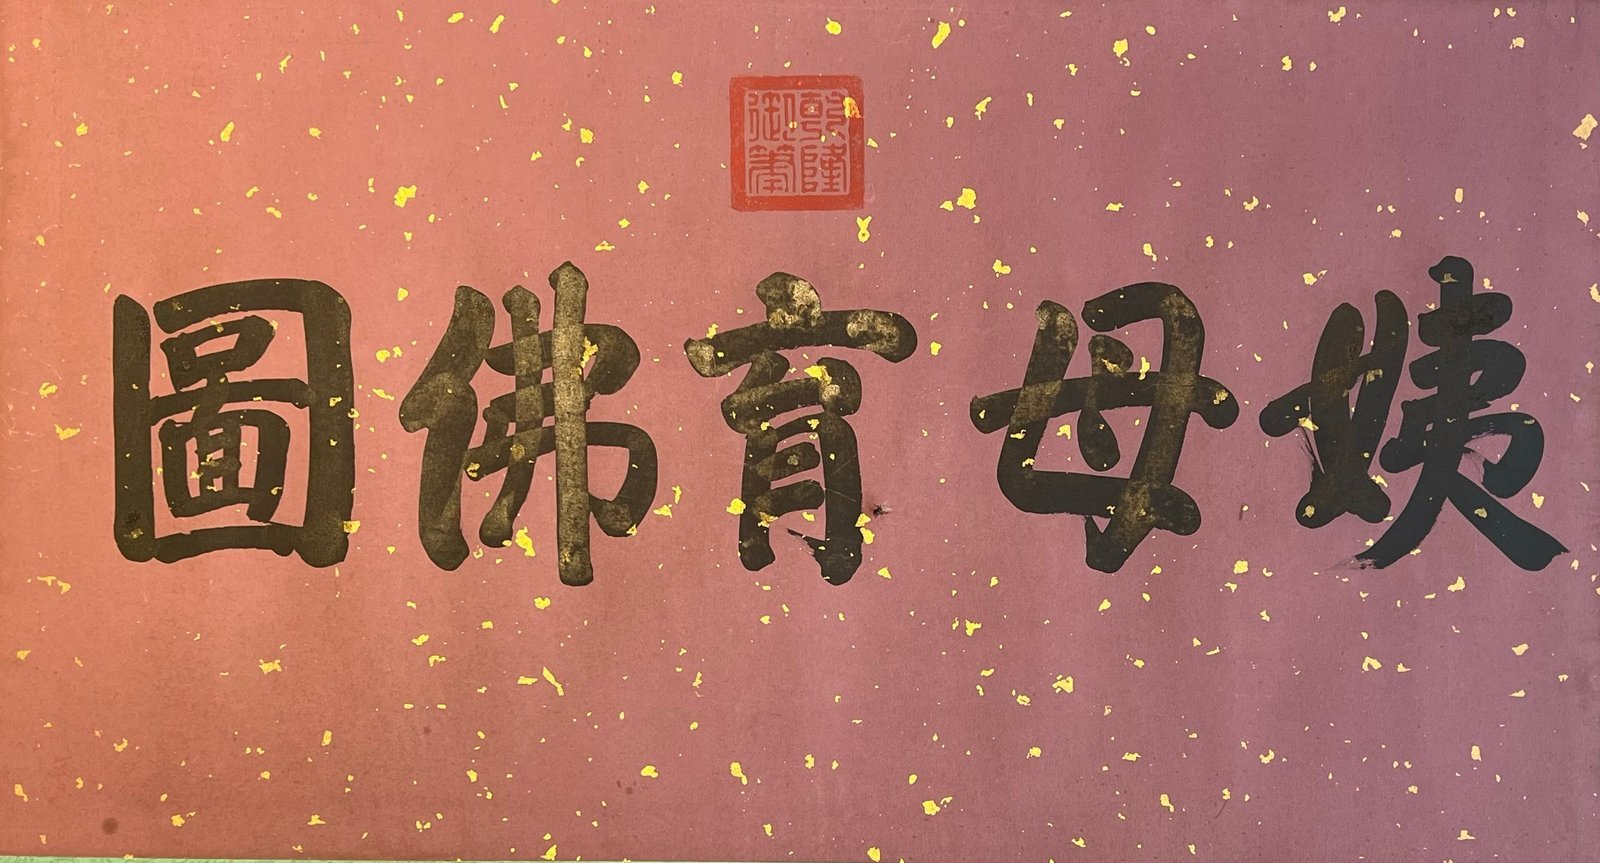 乾隆御筆
姨母育佛圖